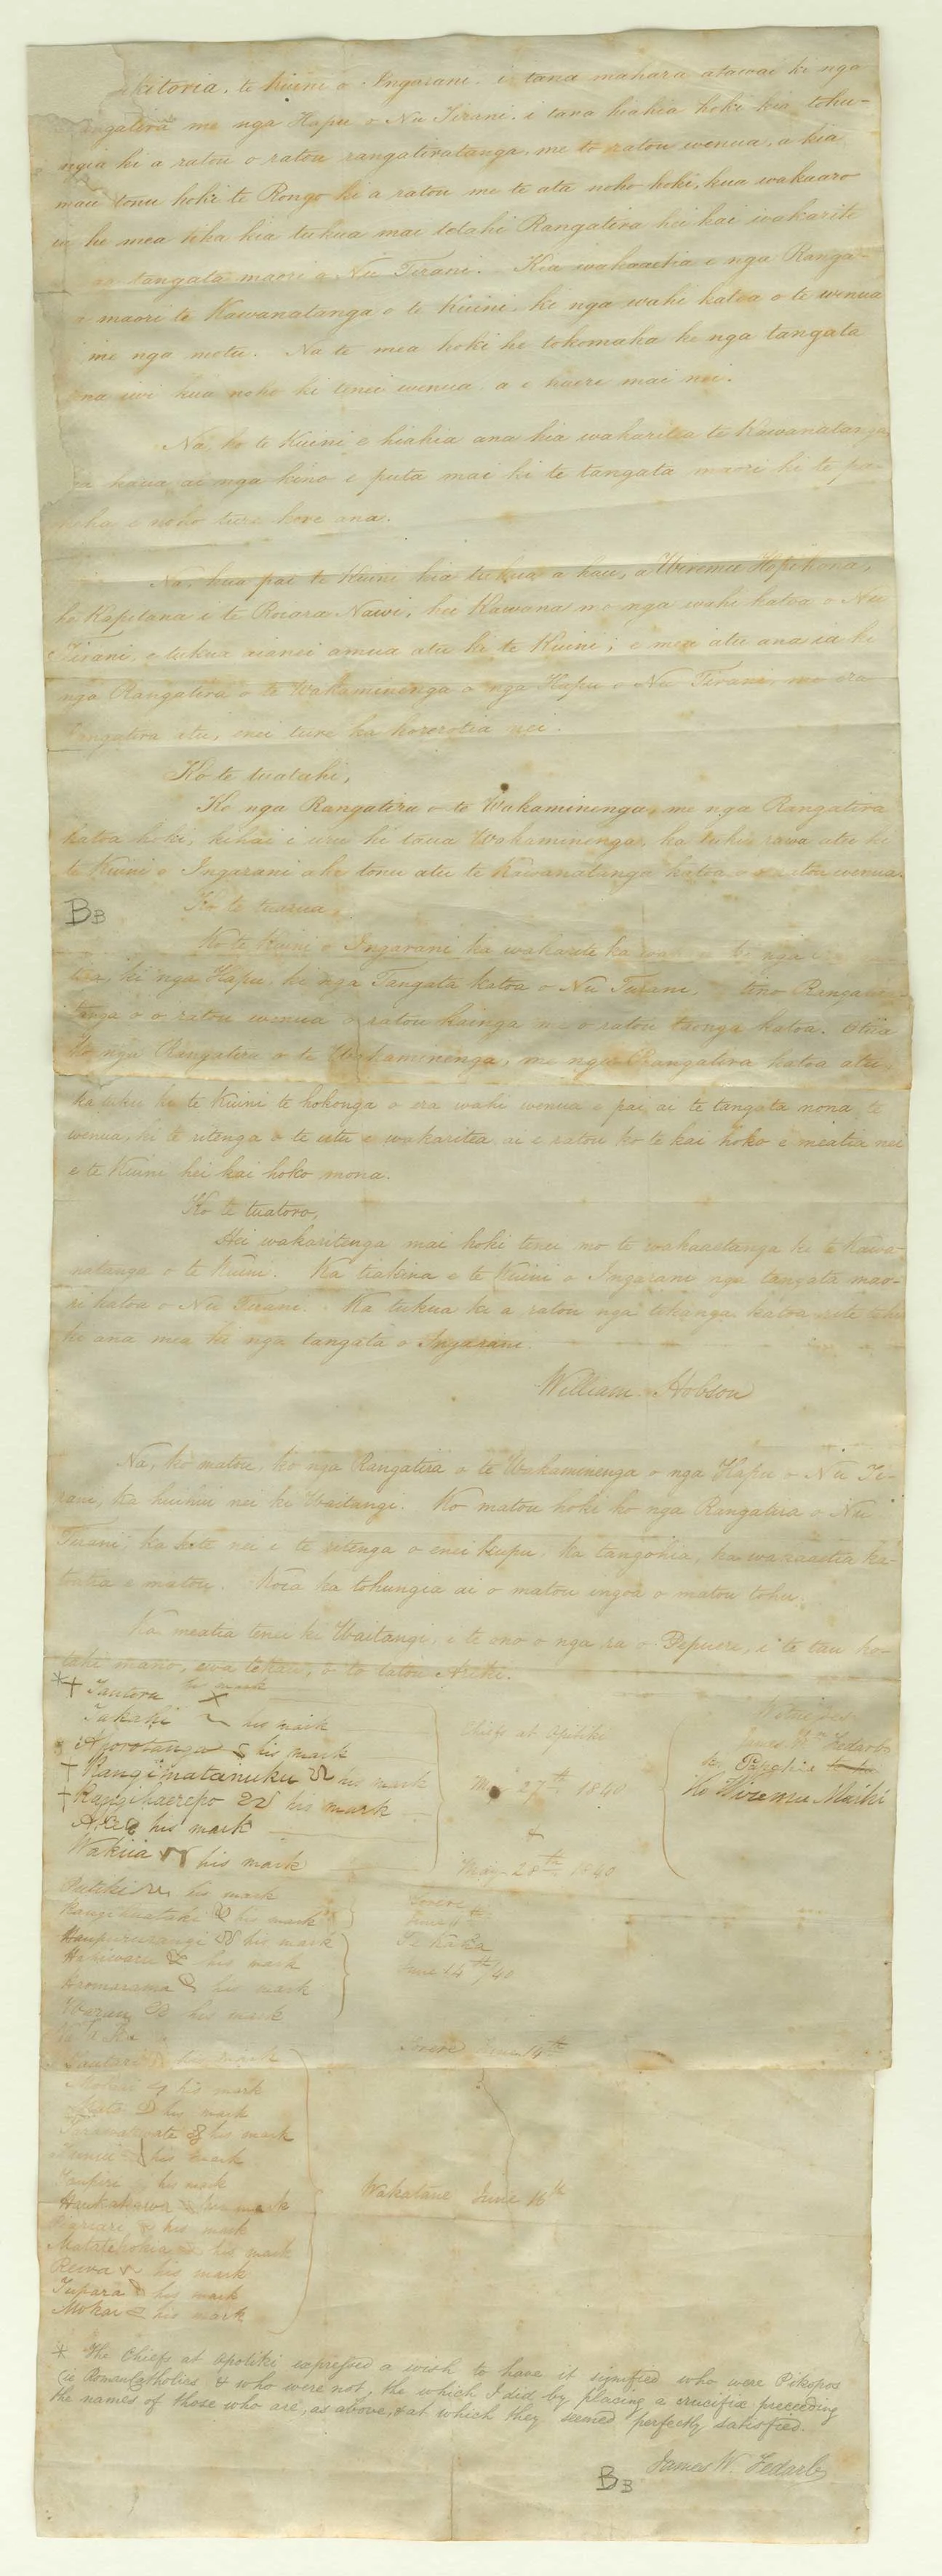 kitoria, te Kuini o Ingarani, i tana mahara atawai ki nga
angatira me nga Hapu o Nu Tirani, i tana hiahia hoki kia tohu-
ngia ki a ratou o ratou rangatiratanga, me to ratou wenua, a kia
mau tonu hoki te Rongo ki a ratou me te ata noho hoki, kua wakaaro
ia he mea tika kia tukua mai tetahi Rangatira hei kai wakarite
tangata maori o Nu Tirani. Kia wakaaetia e nga Ranga-
maori te Kawanatanga o te Kuini, ki nga wahi katoa o te wenua
me nga motu. Na te mea hoki he tokomaha ke nga tangata
ona iwi kua noho ki tenei wenua, a e haere mai nei.
Na, ko te Kuini e hiahia ana kia wakaritea te Kawanatanga,
kia kaua ai nga kino e puta mai ki te tangata maori ki te pa-
keha e noho ture kore ana.
Na, kua pai te Kuini kia tukua a hau, a Wiremu Hopihona,
he Kapitana i te Roiara Nawi, hei Kawana mo nga wahi katoa o Nu
Tirani, e tukua aianei amua atu ki te Kuini; e mea atu ana ia ki
nga Rangatira o te Wakaminenga o nga Hapu o Nu Tirani, me era
Rangatira atu, enei ture ka korerotia nei.
Ko te tuatahi,
Ko nga Rangatira o te Wakaminenga, me nga Rangatira
katoa hoki, kihai i uru ki taua Wakaminenga, ka tuku rawa atu ki
te Kuini o Ingarani ake tonu atu te Kawanatanga katoa o o ratou wenua.
BB
Ko te tuarua,
Ko te Kuini o Ingarani ka wakarite ka ki nga
tira, ki nga Hapu, ki nga Tangata katoa o Nu Tirani, tino Rangatira-
tanga o o ratou wenua o ratou kainga me o ratou taonga katoa. Otiia
ko nga Rangatira o te Wakaminenga, me nga Rangatira katoa atu,
ka tuku ki te Kuini te hokonga o era wahi wenua e pai ai te tangata nona te
wenua, ki te ritenga o te utu e wakaritea ai e ratou ko te kai hoko e meatia nei
e te Kuini hei kai hoko mona.
Ko te tuatoru,
Hei wakaritenga mai hoki tenei mo te wakaaetanga ki te Kawa-
natanga o te Kuini. Ka tiakina e te Kuini o Ingarani nga tangata mao-
ri katoa o Nu Tirani. Ka tukua ki a ratou nga tikanga katoa rite tahi
ki ana mea ki nga tangata o Ingarani.
William Hobson
Na, ko matou, ko nga Rangatira o te Wakaminenga o nga Hapu o Nu Ti-
rani, ka huihui nei ki Waitangi. Ko matou hoki ko nga Rangatira o Nu
Tirani, ka kite nei i te ritenga o enei kupu, ka tangohia, ka wakaaetia ka-
toatia e matou. Koia ka tohungia ai o matou ingoa o matou tohu.
Ka meatia tenei ki Waitangi, i te ono o nga ra o Pepuere, i te tau ko-
tahi mano, ewa tekau, o to tatou Ariki.
*+ Tautoru his mark
Takahi his mark
Aporotanga his mark
+ Rangimatanuku his mark
+ Rangihaerepo his mark
Ake his mark
Wakiia his mark
Chiefs at Opitiki
May 27th 1840
&
May 28th 1840
Witnesses
James Wm Fedarb
ko Papahia
ko Wiremu Maihi
Putiki his mark
Rangi his mark
Torere
June 11th
Haupururangi his mark
Hahiwaru his mark
Haomarama his mark
Warau his mark
Te Kaha
June 14th/40
his mark
Torere June 14th
Mokai his mark
his mark
his mark
his mark
Taupiri his mark
Haukakawa his mark
Piariari his mark
Matatehokia his mark
Rewa his mark
Tupara his mark
Mokai his mark
Wakatane June 16th
* The Chiefs at Opotiki expressed a wish to have it signified who were Pikopos
(ie Roman Catholics, & who were not, the which I did by placing a crucifix preceding
the names of those who are, as above, & at which they seemed perfectly satisfied.
James W. Fedarb
BB